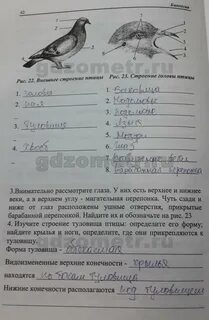 42
Биология
gdzometr.ru
Рис. 22. Внешнее строение птицы
Рис. 23. Строение головы птицы
1. голова
2. шея
3. туловище
4. хвост
1.
2. Надклювье
3. Подклювье
4. Язык
5. Ноздри
6. Глаз
7.
8. Барабанная перепонка
gdzometr.ru
3.Внимательно рассмотрите глаза. У них есть верхнее и нижнее
веки, а в верхнем углу - мигательная перепонка. Чуть сзади и
ниже от глаз расположены ушные отверстия, прикрытые
барабанной перепонкой. Найдите их и обозначьте на рис. 23
4. Изучите строение туловища птицы: определите его форму;
найдите крылья и ноги, определите, где они прикрепляются к
туловищу.
Форма туловища - овальная
Видоизмененные верхние конечности - крылья
находятся по бокам туловища
Нижние конечности располагаются под туловищем